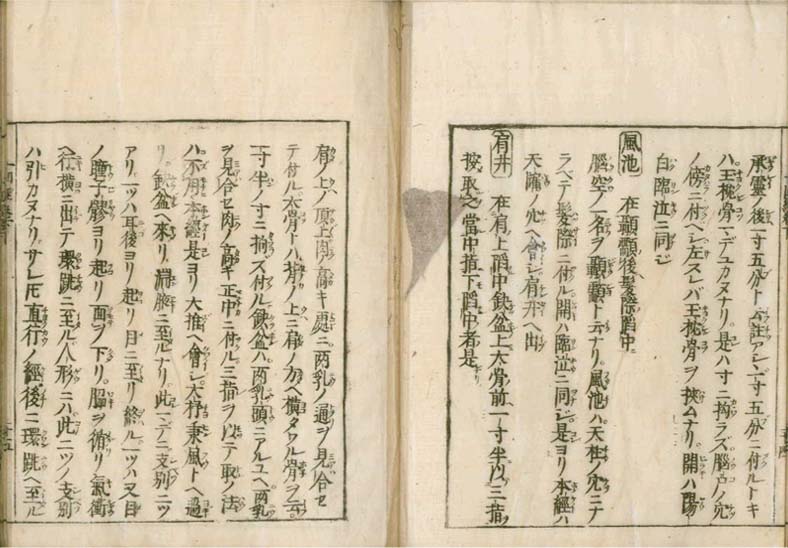 承靈ノ後一寸五分ト註アレ𪜈一寸五分ニ付ルトキ
ハ玉枕骨マデユカヌナリ是ハ寸ニ拘ラズ腦戸ノ穴
ノ傍ニ付ベシ左スレバ玉枕骨ヲ挾ムナリ開ハ陽
白臨泣ニ同ジ
風池 在顳顬後髪際䧟中
腦空ノ一名ヲ顳顬ト云ナリ風池ハ天柱ノ穴ニナ
ラベテ髪際ニ付ル開ハ臨泣ニ同ジ是ヨリ本經ハ
天牖ノ穴ヘ會シ肩井ヘ出
肩井 在肩上䧟中缺盆上大骨前一寸半以三指
按取之當中指下䧟中者是
肩ノ上ノ頂上肉高キ處ニ兩乳ノ通ヲ見合セ
テ付ル大骨トハ背ノ上ニ有ノ方ヘ横タワル骨ヲ云
一寸半ノ寸ニ拘ズ付ル缺盆ハ兩乳頭ニアルユヘ兩乳
ヲ見合セ肉ノ高キ正中ニ付ル三指ヲ以テ取ノ法
ハ不用本經是ヨリ大推ヘ會シ大杼秉風トヘ過
リ缺盆ヘ來リ淵腋ニ至ルナリ此マデニ支別二ツ
アリ一ツハ耳後ヨリ起リ目ニ至リ終ル一ツハ又目
ノ瞳子髎ヨリ起リ面ヲ下リ腦ヲ循リ氣衝
ヘ行横ニ出テ環跳ニ至ル人形ニハ此二ツノ支別
ハ引カヌナリサレ𪜈直行ノ經後ニ環跳ヘ至ル